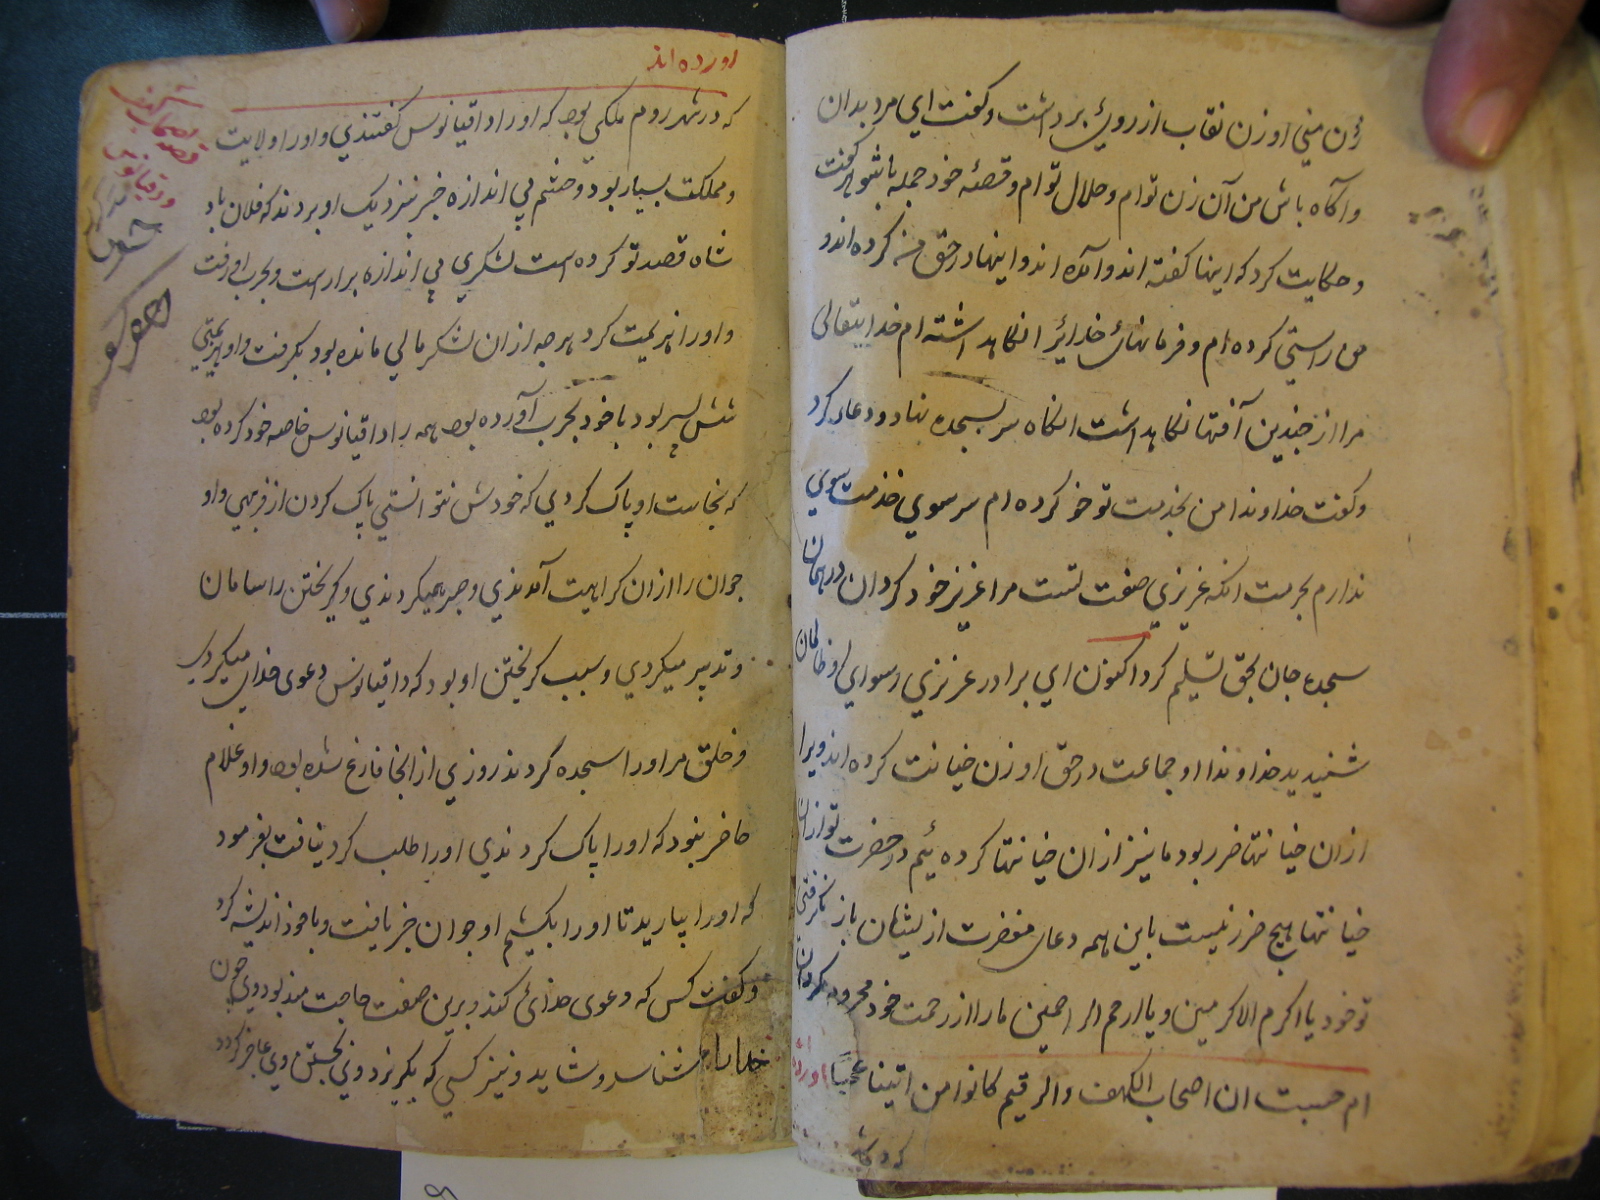 زن مني او زن نقاب از روي برداشت و كفت اي مرد بدان
و آكاه باش من آن زن توام و حلال توام و قصۀ خود جمله با شوهر كفت
و حكايت كرد كه اينها كفته اند و آمده اند و اينها در حق من كرده اند و
من راستي كرده ام و فرمانهاي خدايرا نكاهداشته ام خدايتعالي
مرا از چندين آفتها نكاهداشت انكاه سر بسجده نهاد و دعا كرد
و كفت خداوندا من بخدمت تو خو كرده ام سر موي خدمت سوي
ندارم بحرمت انكه عزيزي صفت تست مرا عزيز خود كردان در همان
سجده جان بحق تسليم كرد اكنون اي برادر عزيزي رسواي او ظالمان
شنيديد خداوندا او جماعت در حق او زن خيانت كرده اند ويرا
از ان خيانتها ضرر بود ما نيز از ان خيانتها كرده ئيم در حضرت تو از ان
خيانتها هيچ ضرر نيست باين همه دعاي مغفرت از يشان باز نكرفتي
تو خود يا اكرم الاكرمين و يا ارحم الراحمين ما را از رحمت خود محروم مكردان
ام حسبت ان اصحاب الكهف و الرقيم كانوا من اتينا عجبًا اورده
كه در شهر
اورده اند
كه در شهر روم ملكي بود كه او را داقيانوس كفتندي و او را ولايت
و مملكت بسيار بود و حشم بي اندازه خبر بنزديك او بردند كه فلان باد
شاه قصد تو كرده است لشكري بي اندازه براراست و بحرب او رفت
و او را هزيمت كرد هرچه از ان لشكر مالي مانده بود بكرفت و او هزيمتي
شش پسر بود با خود بحرب آورده بود همه را داقيانوس خاصه خود كرده بود
كه نجاست او پاك كردي كه خودش نتوانستي پاك كردن از فربهي و او
جوان را از ان كراهيت آمدندي و صبر هميكردندي و كريختن را سامان
و تدبير ميكردي و سبب كريختن او بود كه داقيانوس دعوي خداي ميكردي
و خلق مر او را سجده كردند روزي از انجا فارغ شده بود و او غلام
حاضر نبود كه او را پاك كردندي او را طلب كرد نيافت بفرمود
كه او را بياريد تا او را بكشيم او جوان خبر يافت و با خود انديشه كرد
و كفت كس كه دعوي خدائي كند و برين صفت حاجت مند بود وي چون
خدايرا شناسد و شايد و نيز كسي كه بكريزد وي بجستن وي عاجز كردد
قصه اصحاب